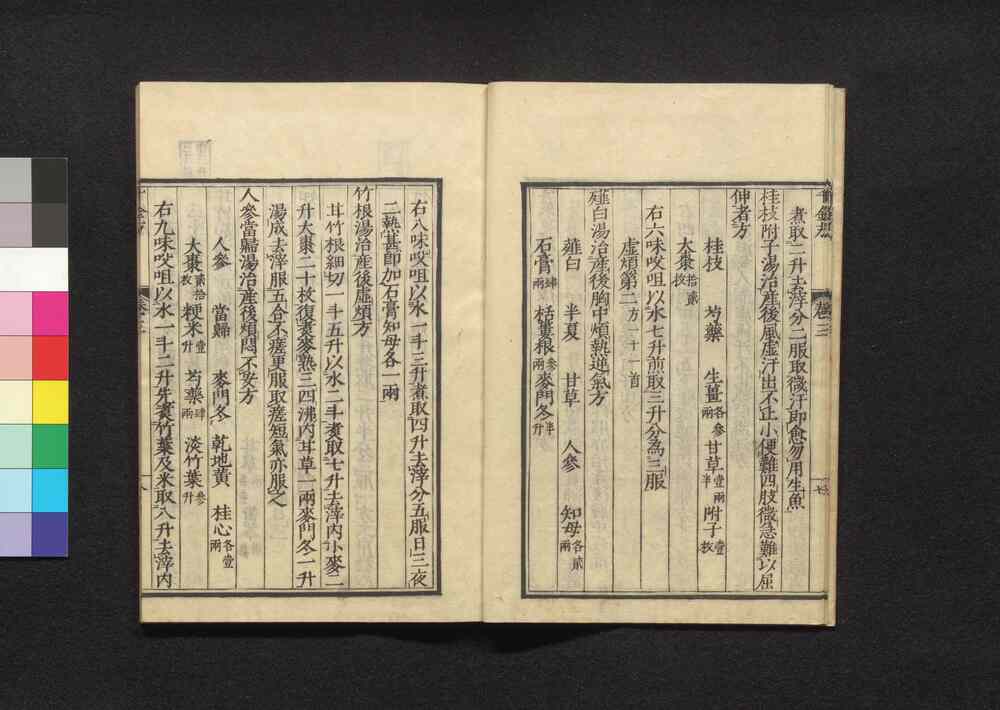 千金方 卷三 十七
煮取二升去滓分二服取微汗即愈勿用生魚
桂枝附子湯治產後風虛汗出不止小便難四肢微急難以屈
伸者方
桂枝 芍藥 生薑各參兩 甘草壹兩半 附子壹枚
大棗拾貳枚
右六味㕮咀以水七升煎取三升分為三服
虛煩第二方一十一首
薤白湯治產後胸中煩熱逆氣方
薤白 半夏 甘草 人參 知母各貳兩
石膏肆兩 栝蔞根參兩 麥門冬半升
右八味㕮咀以水一斗三升煮取四升去滓分五服日三夜
二熱甚即加石膏知母各一兩
竹根湯治產後虛煩方
甘竹根細切一斗五升以水二斗煮取七升去滓內小麥二
升大棗二十枚復煮麥熟三四沸內甘草一兩麥門冬一升
湯成去滓服五合不瘥更服取瘥短氣亦服之
人參當歸湯治產後煩悶不安方
人參 當歸 麥門冬 乾地黃 桂心各壹兩
大棗貳拾枚 粳米壹升 芍藥肆兩 淡竹葉參升
右九味㕮咀以水一斗二升先煮竹葉及米取八升去滓內